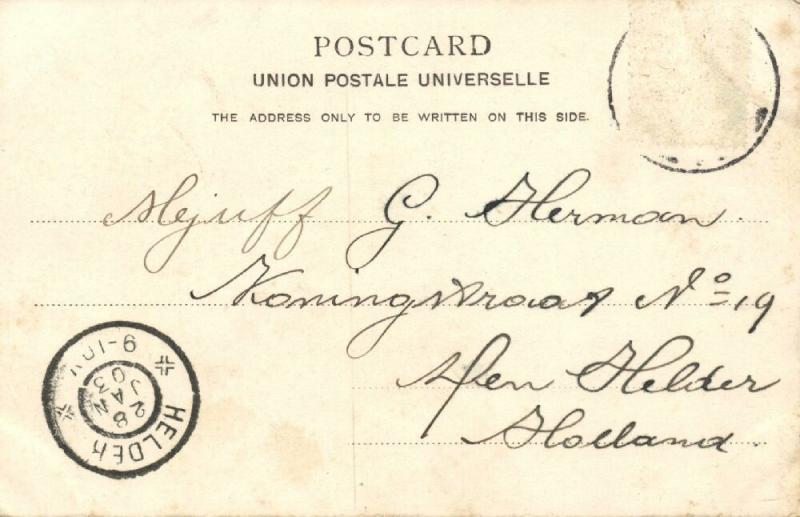 POSTCARD
UNION POSTALE UNIVERSELLE
THE ADDRESS ONLY TO BE WRITTEN ON THIS SIDE.
Mejuff G. Herman.
Koningstraat No 19
Den Helder
Holland.
HELDER
28 JAN 03
9-10V